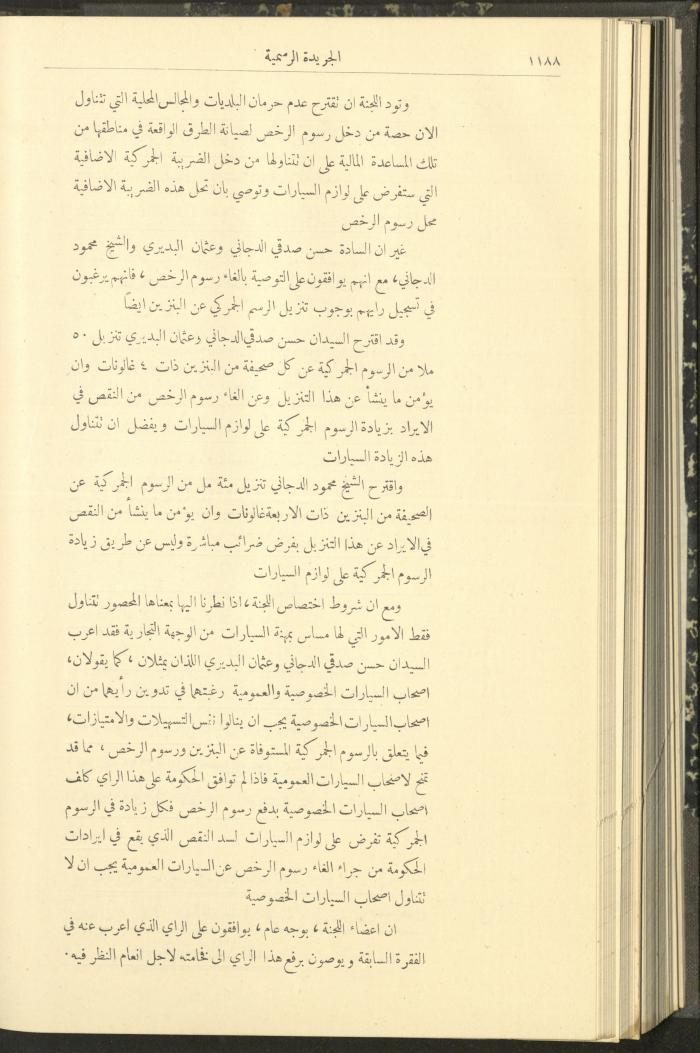 ١١٨٨
الجريدة الرسمية
وتود اللجنة ان تقترح عدم حرمان البلديات والمجالس المحلية التي تتناول
الان حصة من دخل رسوم الرخص لصيانة الطرق الواقعة في مناطقها من
تلك المساعدة المالية على ان تتناولها من دخل الضريبة الجمركية الاضافية
التي ستفرض على لوازم السيارات وتوصي بان تحل هذه الضريبة الاضافية
محل رسوم الرخص
غير ان السادة حسن صدقي الدجاني وعثمان البديري والشيخ محمود
الدجاني، مع انهم يوافقون على التوصية بالغاء رسوم الرخص، فانهم يرغبون
في تسجيل رايهم بوجوب تنزيل الرسم الجمركي عن البنزين ايضاً
وقد اقترح السيدان حسن صدقي الدجاني وعثمان البديري تنزيل ٥٠
ملا من الرسوم الجمركية عن كل صحيفة من البنزين ذات ٤ غالونات وان
يؤمن ما ينشأ عن هذا التنزيل وعن الغاء رسوم الرخص من النقص في
الايراد بزيادة الرسوم الجمركية على لوازم السيارات ويفضل ان تتناول
هذه الزيادة السيارات
واقترح الشيخ محمود الدجاني تنزيل مئة مل من الرسوم الجمركية عن
الصحيفة من البنزين ذات الاربعة غالونات وان يؤمن ما ينشأ من النقص
في الايراد عن هذا التنزيل بفرض ضرائب مباشرة وليس عن طريق زيادة
الرسوم الجمركية على لوازم السيارات
ومع ان شروط اختصاص اللجنة، اذا نظرنا اليها بمعناها المحصور تتناول
فقط الامور التي لها مساس بمهنة السيارات من الوجهة التجارية فقد اعرب
السيدان حسن صدقي الدجاني وعثمان البديري اللذان يمثلان، كما يقولان،
اصحاب السيارات الخصوصية والعمومية رغبتهما في تدوين رأيهما من ان
اصحاب السيارات الخصوصية يجب ان ينالوا نفس التسهيلات والامتيازات،
فيما يتعلق بالرسوم الجمركية المستوفاة عن البنزين ورسوم الرخص، مما قد
تمنح لاصحاب السيارات العمومية فاذا لم توافق الحكومة على هذا الراي كلف
اصحاب السيارات الخصوصية بدفع رسوم الرخص فكل زيادة في الرسوم
الجمركية تفرض على لوازم السيارات لسد النقص الذي يقع في ايرادات
الحكومة من جراء الغاء رسوم الرخص عن السيارات العمومية يجب ان لا
تتناول اصحاب السيارات الخصوصية
ان اعضاء اللجنة، بوجه عام، يوافقون على الراي الذي اعرب عنه في
الفقرة السابقة ويوصون برفع هذا الراي الى فخامته لاجل انعام النظر فيه.